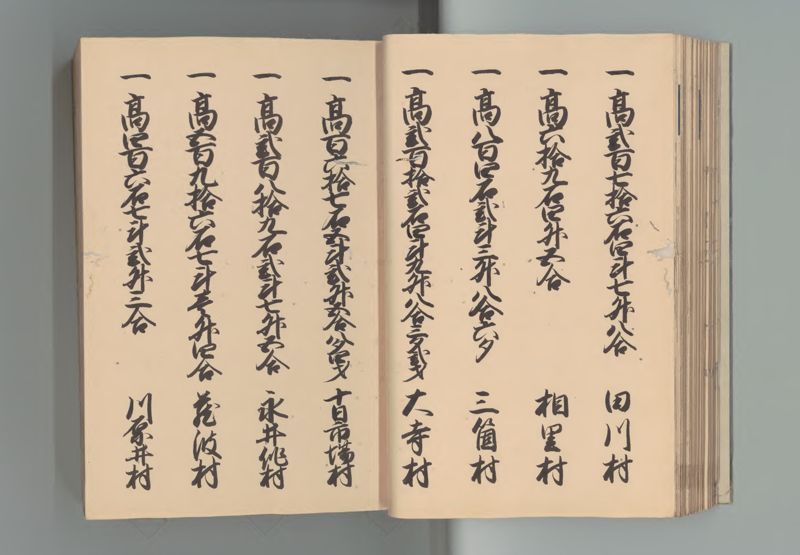 一 高弐百七拾六石四斗七升八合 田川村
一 高六拾九石四升五合 相里村
一 高八百四石弐斗三升八合六夕 三箇村
一 高弐百拾弐石四斗九升八合三夕弐才 大寺村
一 高百六拾七石五斗弐升五合八夕四才 十日市場村
一 高弐百八拾九石弐斗七升五合 永井作村
一 高五百九拾六石七斗壱升四合 茂波村
一 高四百六石七斗弐升二合 川原井村